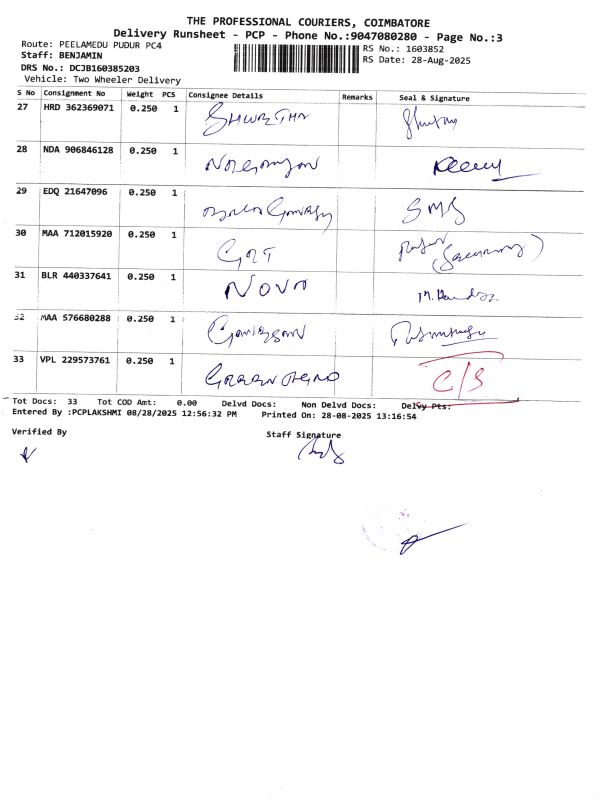 THE PROFESSIONAL COURIERS, COIMBATORE
Delivery Runsheet - PCP - Phone No.:9047080280 - Page No.:3
Route: PEELAMEDU PUDUR PC4
RS No.: 1603852
Staff: BENJAMIN
RS Date: 28-Aug-2025
DRS No.: DCJB160385203
Vehicle: Two Wheeler Delivery
S No Consignment No Weight PCS Consignee Details Remarks Seal & Signature
27 HRD 362369071 0.250 1
28 NDA 906846128 0.250 1
29 EDQ 21647096 0.250 1 SMS
30 MAA 712015920 0.250 1 GRT
31 BLR 440337641 0.250 1 NOVA
32 MAA 576680288 0.250 1
33 VPL 229573761 0.250 1 C/S
Tot Docs: 33 Tot COD Amt: 0.00 Delvd Docs: Non Delvd Docs: Delvy Pts:
Entered By :PCPLAKSHMI 08/28/2025 12:56:32 PM Printed On: 28-08-2025 13:16:54
Verified By
Staff Signature